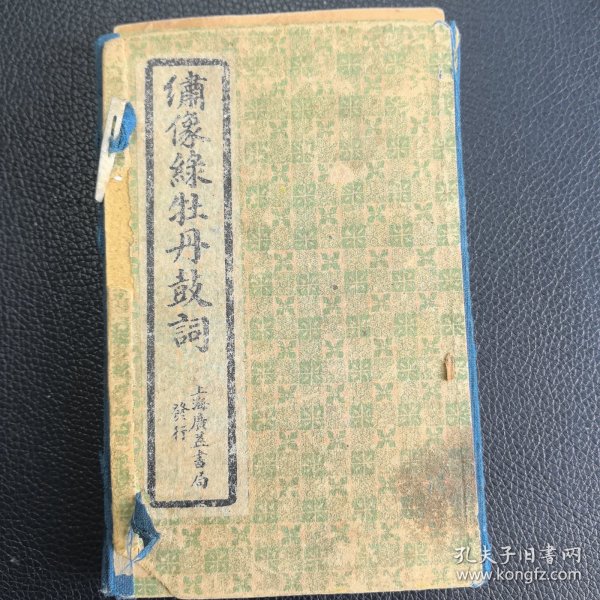 繡像綠牡丹鼓詞
上海廣益書局
發行
孔夫子旧书网
www.kongfz.com